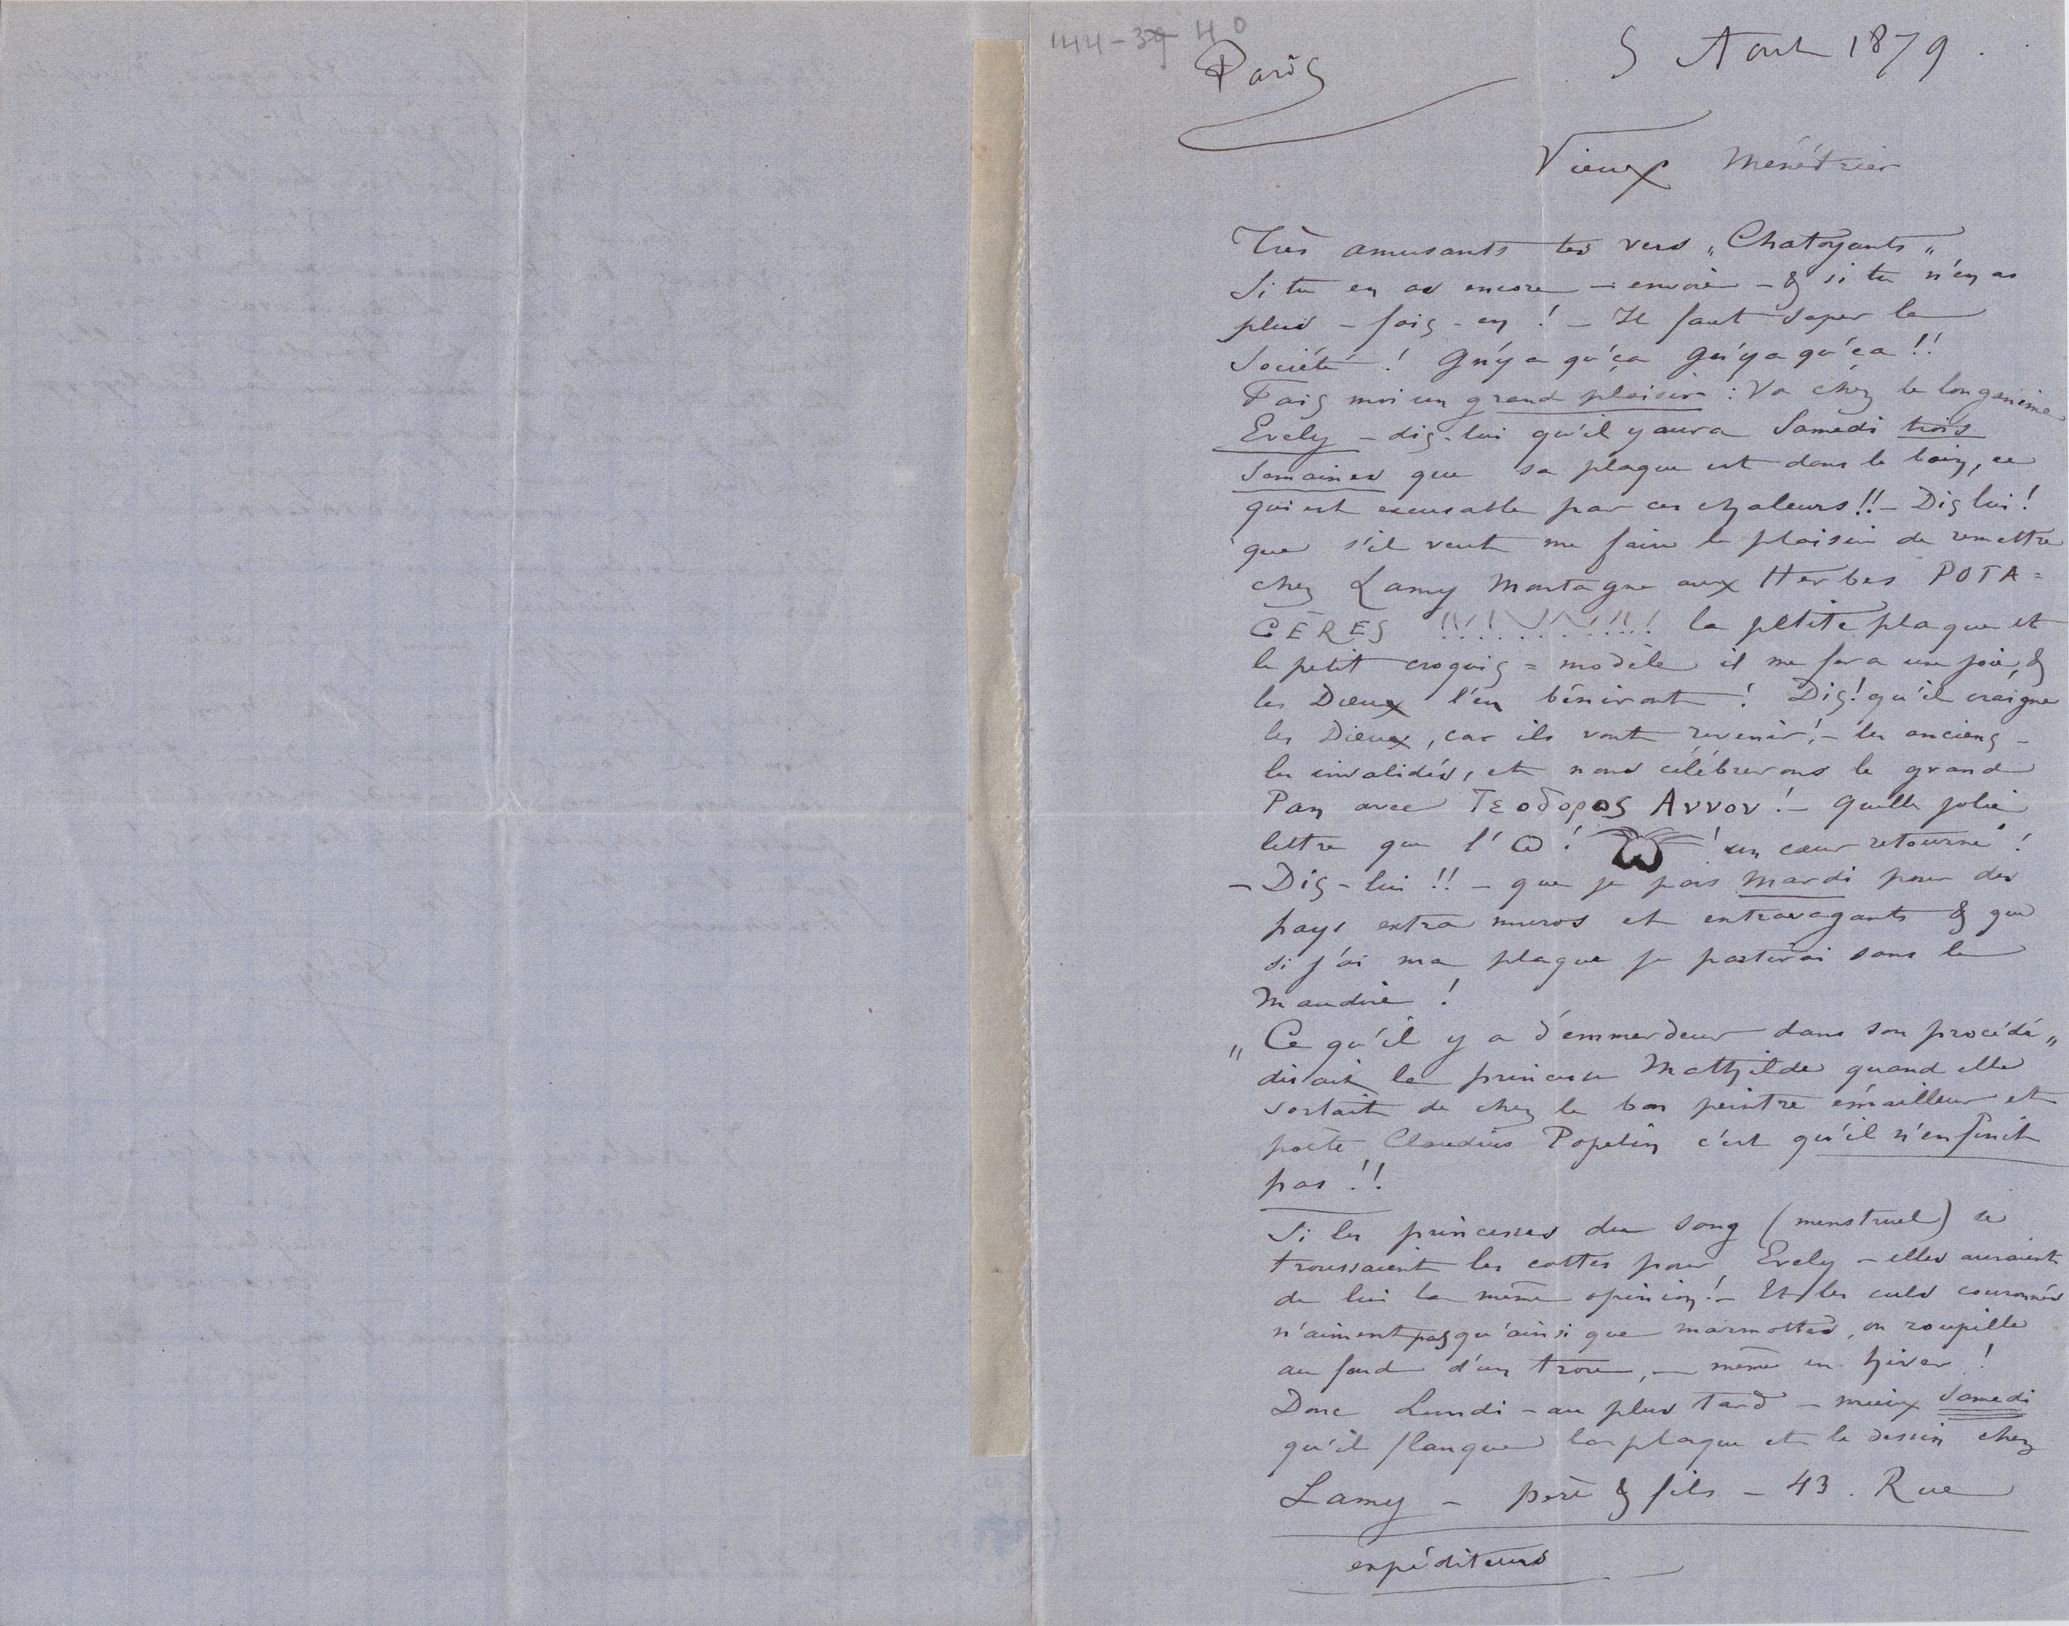 144-39 40
Paris 5 Aout 1879.
Vieux Ménétrier
Très amusants tes vers „Chatoyants„
Si tu en as encore – envoie – & si tu n'en as
plus – fais-en ! – Il faut saper la
Société ! Gn'y a qu'ça Gn'y a qu'ça !!
Fais moi un grand plaisir : Va chez le longanime
Evely – dis-lui qu'il y aura Samedi trois
Semaines que sa plaque est dans le bain, ce
qui est excusable par ces chaleurs !! – Dis lui !
que s'il veut me faire le plaisir de remettre
chez Lamy Montagne aux Herbes POTA=
GÈRES !!!!!!!!!!! la petite plaque et
le petit croquis = modèle il me fera une joie, &
les Dieux l'en béniront ! Dis ! qu'il craigne
les Dieux, car ils vont revenir, ! – les anciens –
les invalidés, et nous célébrerons le grand
Pan avec Τεοδορος Αννον ! – Quelle jolie
lettre que l'ω ! ω ! un cœur retourné !
– Dis-lui !! – que je pars Mardi pour des
pays extra muros et extravagants & que
si j'ai ma plaque je partirai sans le
Maudire !
„Ce qu'il y a d'emmerdeur dans son procédé„
disait la princesse Mathilde quand elle
sortait de chez le bon peintre émailleur et
poète Claudius Popelin c'est qu'il n'en finit
pas !!
Si les princesses du sang (menstruel) se
troussaient les cottes pour Evely – elles auraient
de lui la même opinion ! – Et les culs couronnés
n'aiment pas qu'ainsi que marmottes, on roupille
au fond d'un trou, – même en hiver !
Donc Lundi – au plus tard – mieux Samedi
qu'il flanque la plaque et le dessin chez
Lamy – père & fils – 43. Rue
expéditeurs